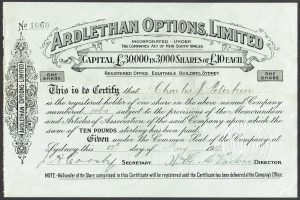 No 1060
ARDLETHAN OPTIONS, LIMITED
INCORPORATED UNDER
THE COMPANIES ACT OF NEW SOUTH WALES
CAPITAL £30000 IN 3000 SHARES OF £10 EACH
ONE SHARE
REGISTERED OFFICE EQUITABLE BUILDING, SYDNEY.
ONE SHARE
This is to Certify that Charles J.
is the registered holder of one share in the above named Company
numbered 1060 subject to the provisions of the Memorandum
and Articles of Association of the said Company upon which the
sum of TEN POUNDS sterling has been paid
Given under the Common Seal of the Company at
Sydney this day of 19
SECRETARY
DIRECTOR.
NOTE:- No Transfer of the Share comprised in this Certificate will be registered until the Certificate has been delivered at the Company's Office.